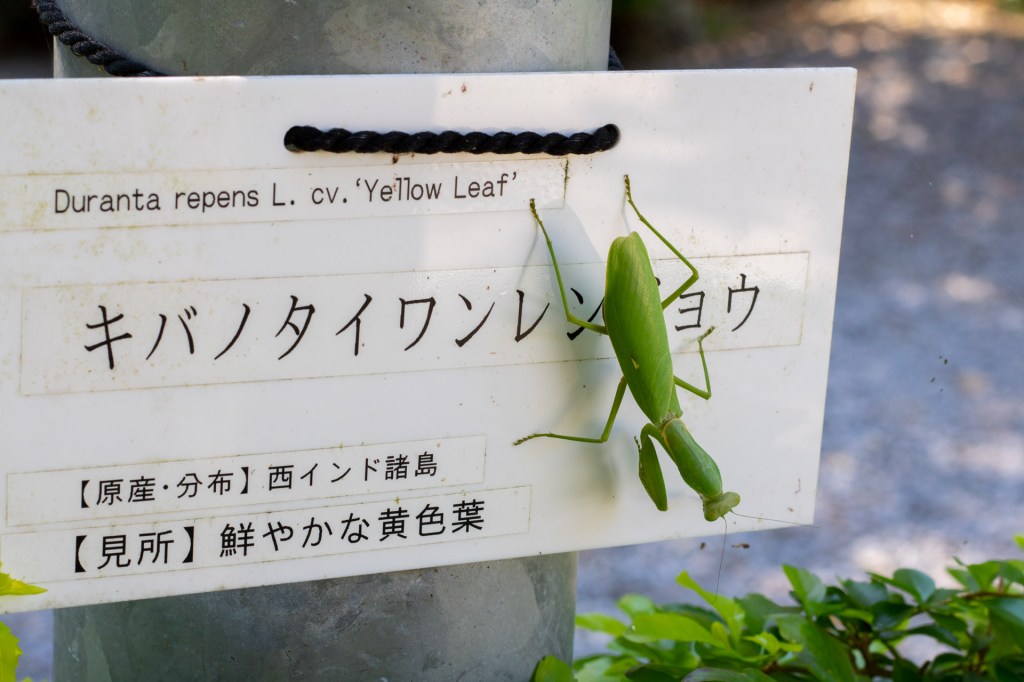 Duranta repens L. cv.‘Yellow Leaf’
キバノタイワンレンギョウ
【原産・分布】西インド諸島
【見所】鮮やかな黄色葉